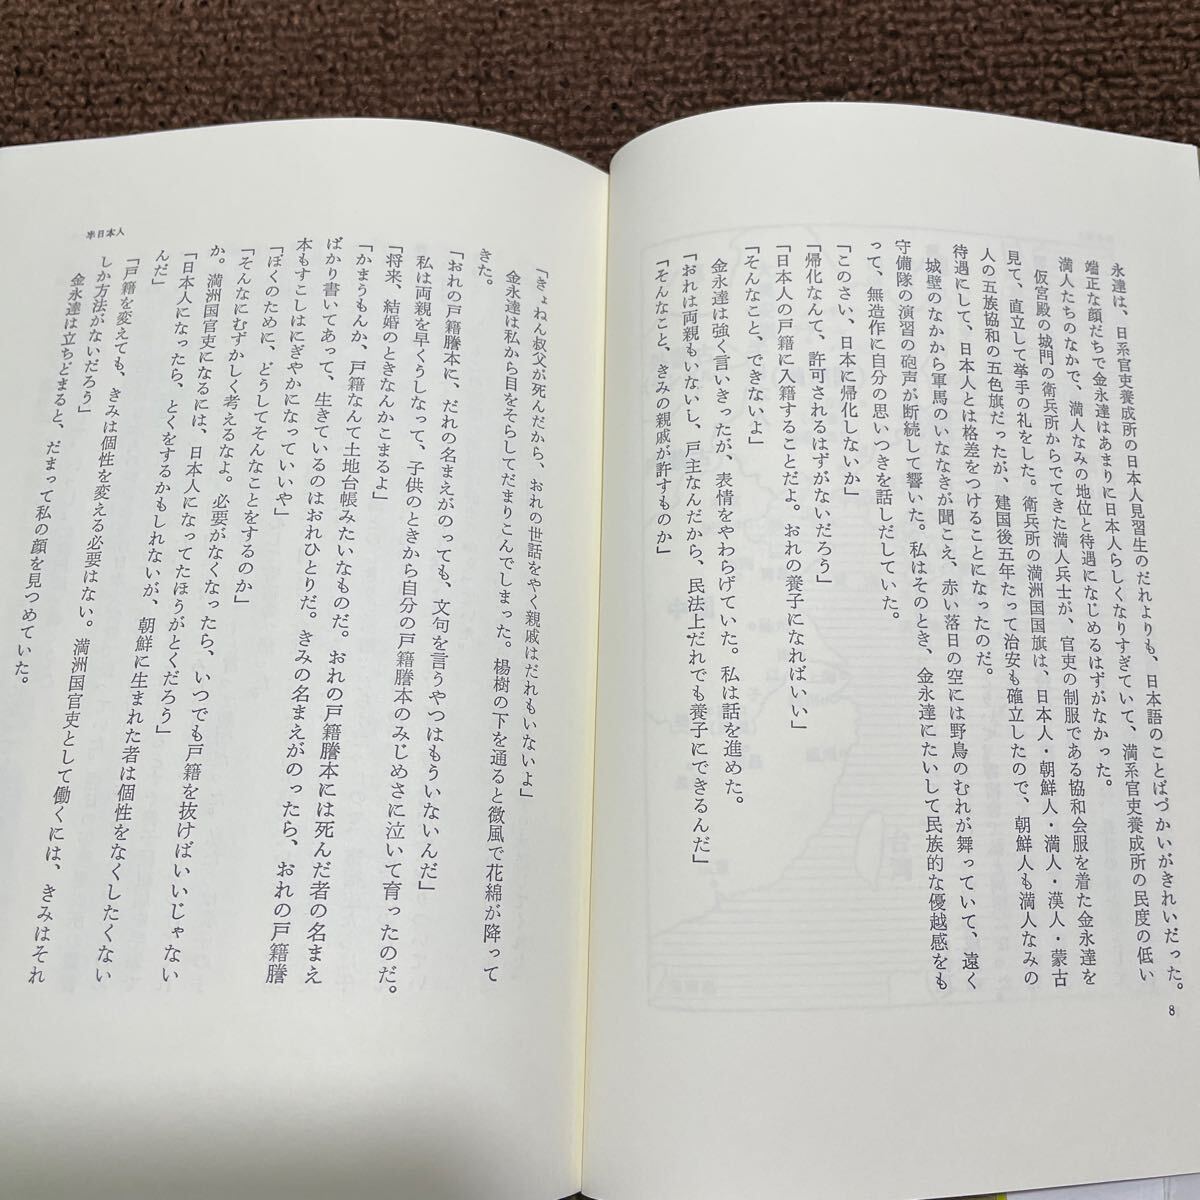 永達は、日系官吏養成所の日本人見習生のだれよりも、日本語のことばづかいがきれいだった。
端正な顔だちで金永達はあまりに日本人らしくなりすぎていて、満系官吏養成所の民度の低い
満人たちのなかで、満人なみの地位と待遇になじめるはずがなかった。
仮宮殿の城門の衛兵所からでてきた満人兵士が、官吏の制服である協和会服を着た金永達を
見て、直立して挙手の礼をした。衛兵所の満洲国国旗は、日本人・朝鮮人・満人・漢人・蒙古
人の五族協和の五色旗だったが、建国後五年たって治安も確立したので、朝鮮人も満人なみの
待遇にして、日本人とは格差をつけることになったのだ。
城壁のなかから軍馬のいななきが聞こえ、赤い落日の空には野鳥のむれが舞っていて、遠く
守備隊の演習の砲声が断続して響いた。私はそのとき、金永達にたいして民族的な優越感をも
って、無造作に自分の思いつきを話しだしていた。
「このさい、日本に帰化しないか」
「帰化なんて、許可されるはずがないだろう」
「日本人の戸籍に入籍することだよ。おれの養子になればいい」
「そんなこと、できないよ」
金永達は強く言いきったが、表情をやわらげていた。私は話を進めた。
「おれは両親もいないし、戸主なんだから、民法上だれでも養子にできるんだ」
「そんなこと、きみの親戚が許すものか」
8
「きょねん叔父が死んだから、おれの世話をやく親戚はだれもいないよ」
金永達は私から目をそらしてだまりこんでしまった。楊樹の下を通ると微風で花綿が降って
きた。
「おれの戸籍謄本に、だれの名まえがのっても、文句を言うやつはもういないんだ」
私は両親を早くうしなって、子供のときから自分の戸籍謄本のみじめさに泣いて育ったのだ。
「将来、結婚のときなんかこまるよ」
「かまうもんか、戸籍なんて土地台帳みたいなものだ。おれの戸籍謄本には死んだ者の名まえ
ばかり書いてあって、生きているのはおれひとりだ。きみの名まえがのったら、おれの戸籍謄
本もすこしはにぎやかになっていいや」
「ぼくのために、どうしてそんなことをするのか」
「そんなにむずかしく考えるなよ。必要がなくなったら、いつでも戸籍を抜けばいいじゃない
か。満洲国官吏になるには、日本人になってたほうがとくだろう」
「日本人になったら、とくをするかもしれないが、朝鮮に生まれた者は個性をなくしたくない
んだ」
「戸籍を変えても、きみは個性を変える必要はない。満洲国官吏として働くには、きみはそれ
しか方法がないだろう」
金永達は立ちどまると、だまって私の顔を見つめていた。
半日本人